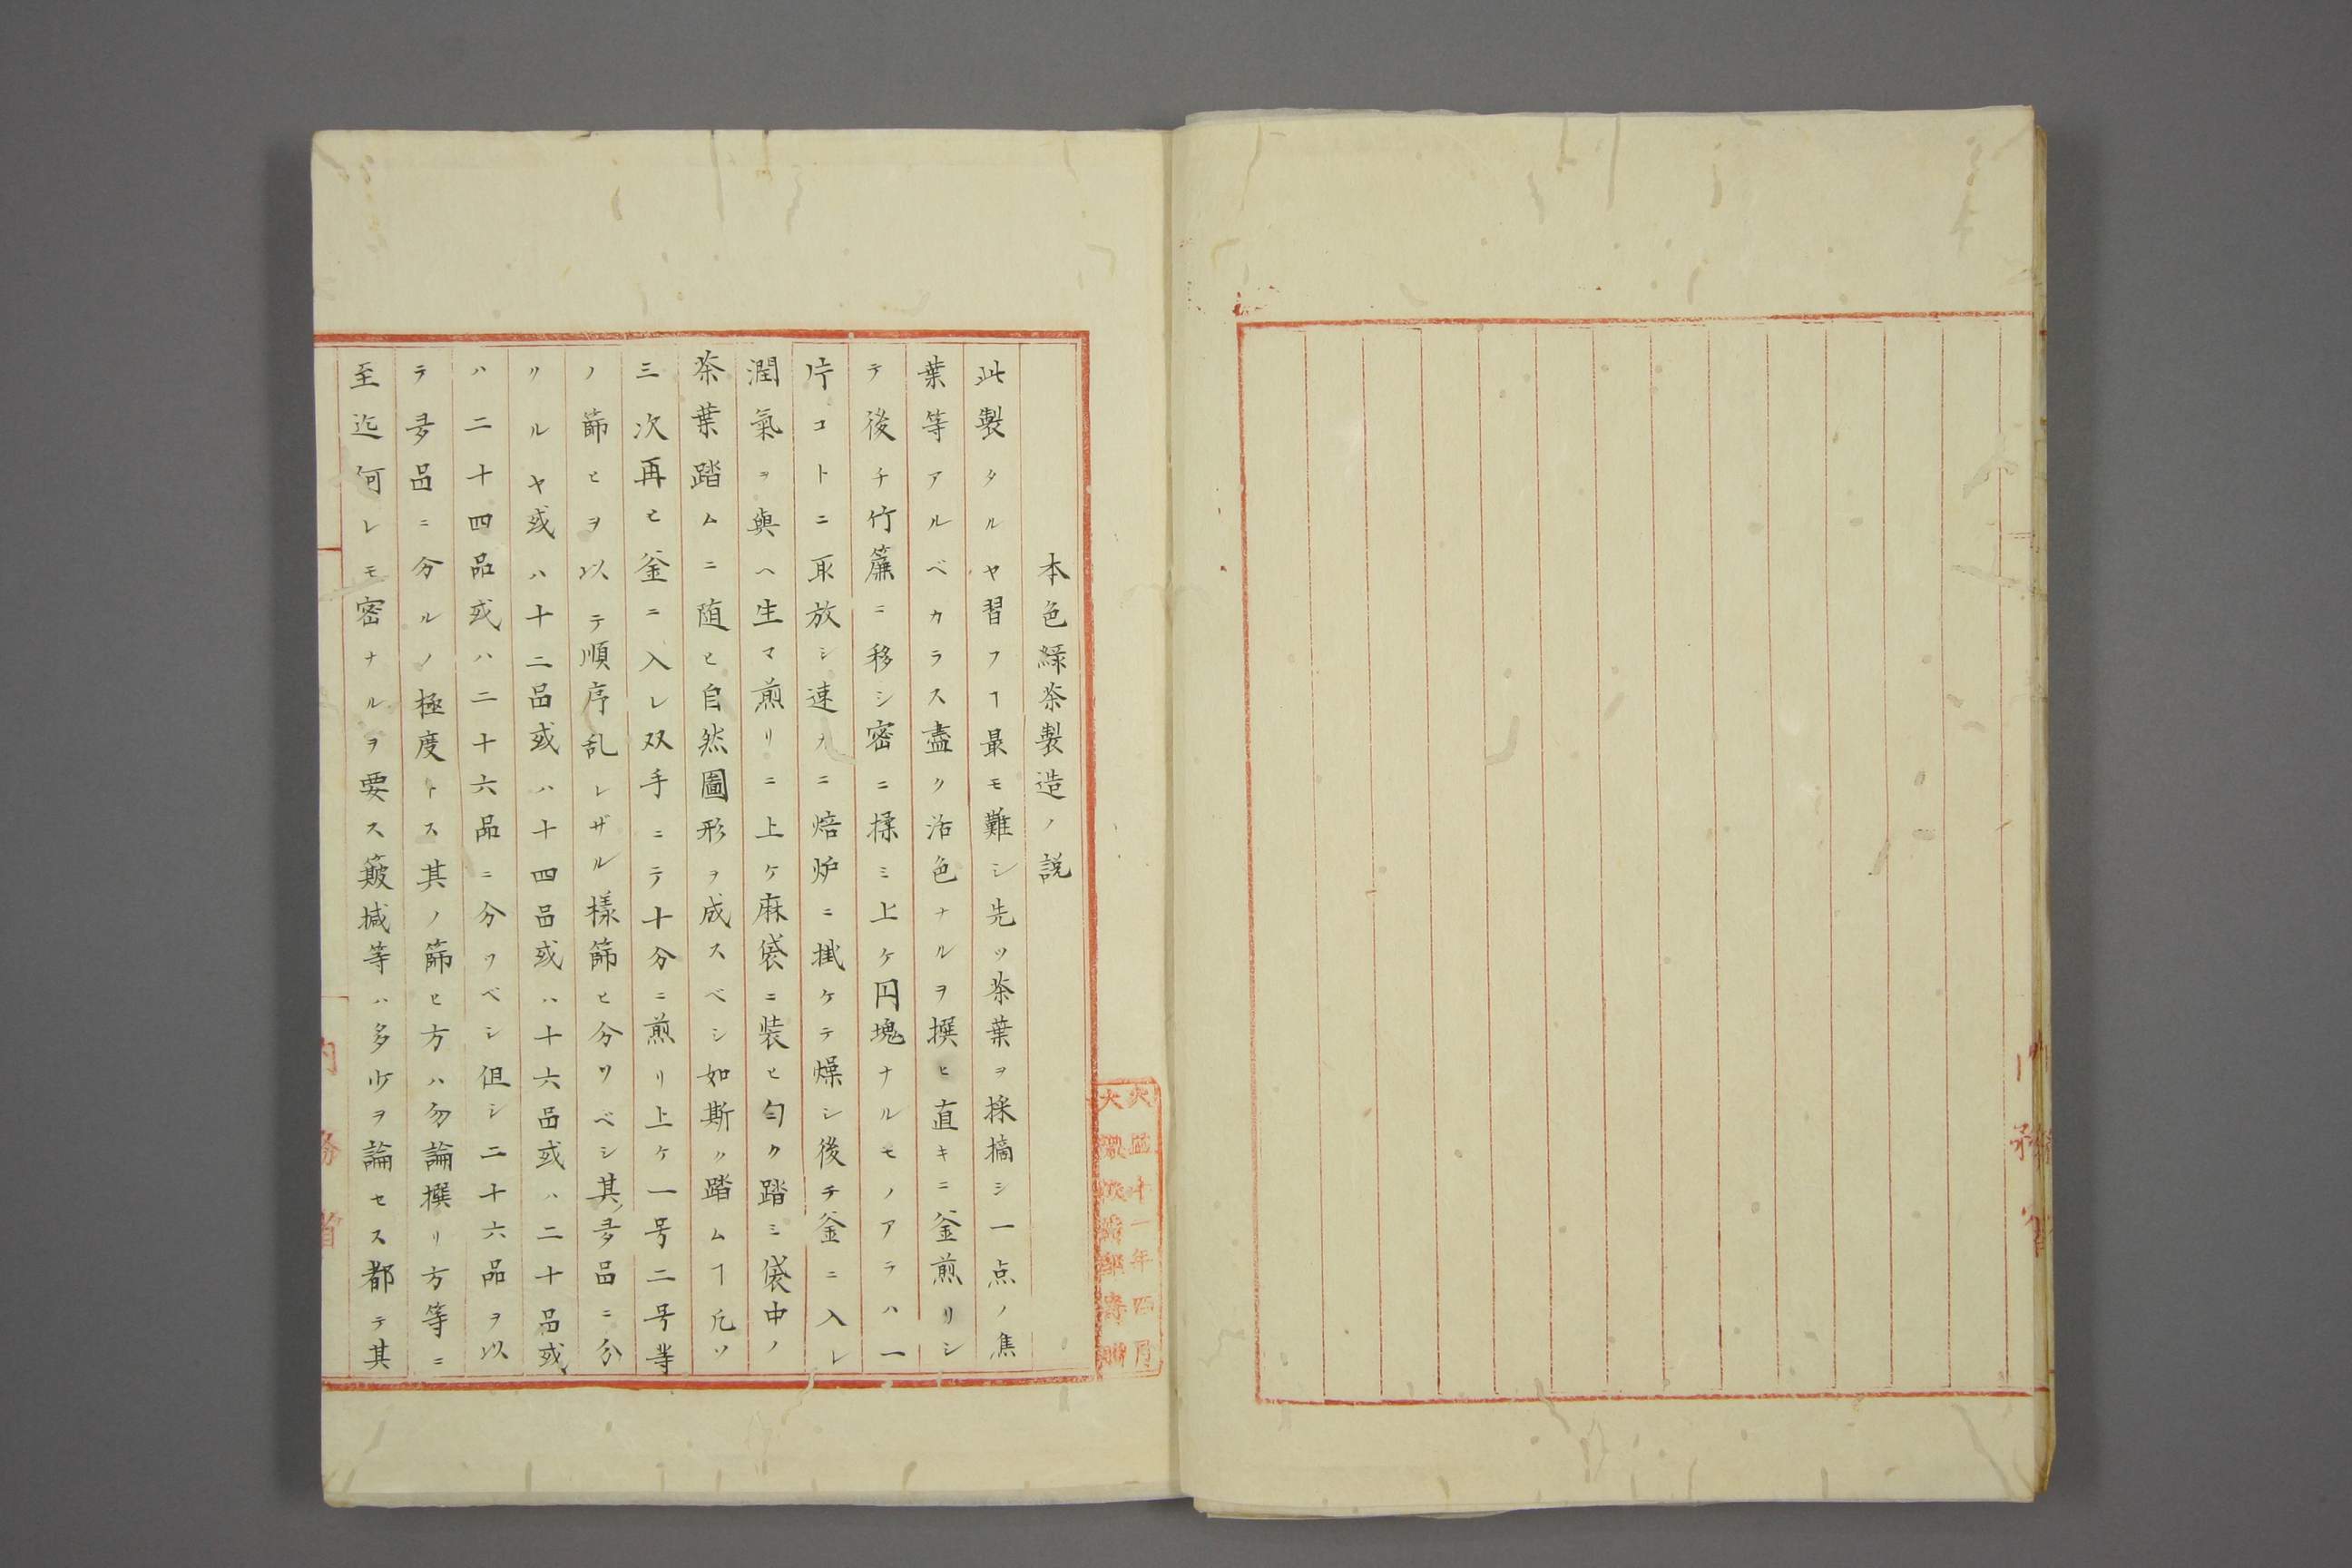 本色緑茶製造ノ説
此製タルヤ習フヿ最モ難シ先ツ茶葉ヲ採摘シ一点ノ焦
葉等アルベカラス盡ク活色ナルヲ撰ヒ直キニ釜煎リシ
テ後チ竹簾ニ移シ密ニ揉ミ上ケ円塊ナルモノアラハ一
片コトニ取放シ速カニ焙炉ニ掛ケテ燥シ後チ釜ニ入レ
潤氣ヲ與ヘ生マ煎リニ上ケ麻袋ニ装ヒ匀ク踏ミ袋中ノ
茶葉踏ムニ随ヒ自然圖形ヲ成スベシ如斯ク踏ムヿ凡ソ
三次再ヒ釜ニ入レ双手ニテ十分ニ煎リ上ケ一号二号等
ノ篩ヒヲ以テ順序乱レザル様篩ヒ分ツベシ其夛品ニ分
リルヤ或ハ十二品或ハ十四品或ハ十六品或ハ二十品或
ハ二十四品或ハ二十六品ニ分ツベシ但シ二十六品ヲ以
テ夛品ニ分ルノ極度トス其ノ篩ヒ方ハ勿論撰リ方等ニ
至迄何レモ密ナルヲ要ス簸揻等ハ多少ヲ論セス都テ其
内務省